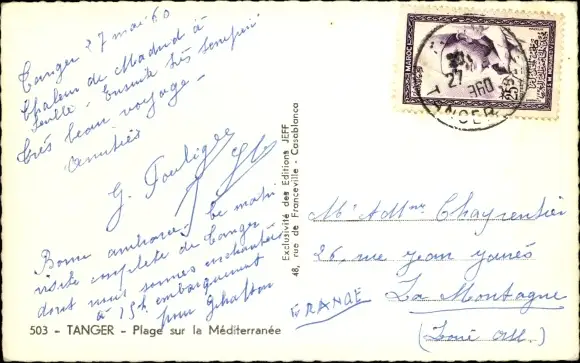 Tanger 27 mai 60
Chaleur de Madrid à
Séville - Ensuite très tempéré
Très beau voyage -
Amitiés
G.
Bonne ambiance. Ce matin
visite complète de Tanger
dont nous sommes enchantés
à 15h embarquement
pour Gibraltar
503 - TANGER - Plage sur la Méditerranée
Exclusivité des Editions JEFF
48, rue de Franceville - Casablanca
MAROC
25
27
960
TANGER
Mr & Mme Charpentier
26, rue Jean Jaurès
La Montagne
(Loire Atl.)
FRANCE